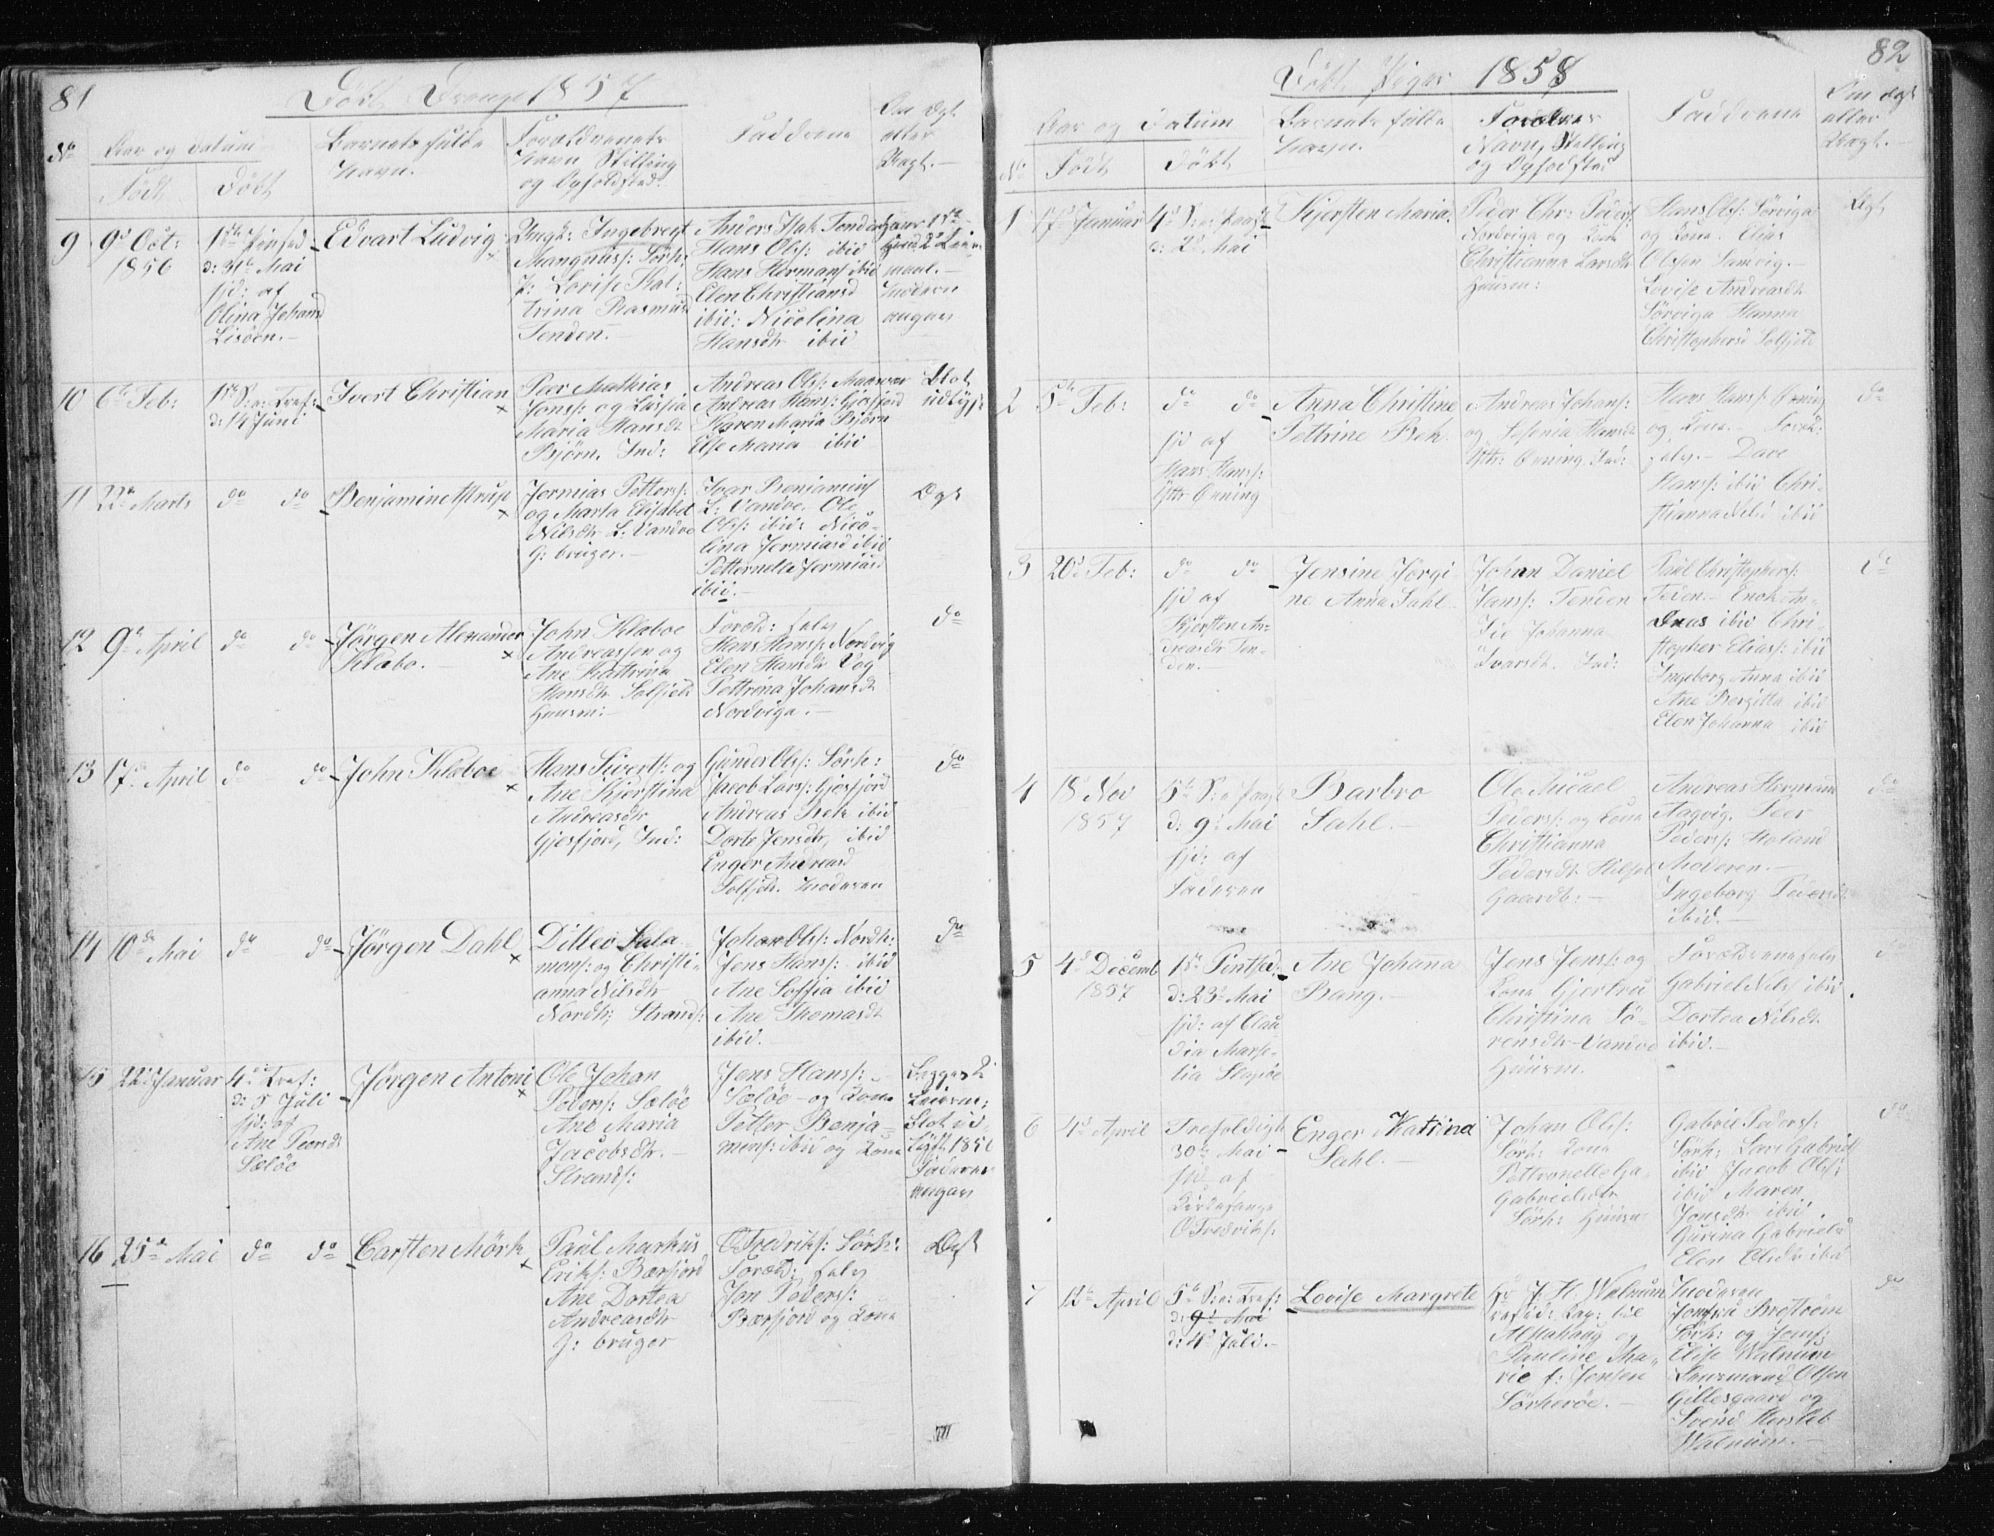 81
Døbt Drenge 1857
No
Aar og Datum
Født
Døbt
Barnets fulde
Navn.
Forældrenes
Navn, Stilling
og Opholdsted.
Faddrene
Om Dgt
eller
Uægt.-
9
9d Oct:
1856
1ste Pintsed
d: 31te Mai
hjd: af
Olina Johansd
Lisøen.-
Edvart Ludvig
Ungk: Ingebregt
Mangnuss: Sørh:
p: Lovise Kat:
trina Rasmusd
Tenden.-
Anders Isak Tenden
Hans Ols: ibid
Hans Hermans ibid
Elen Christiansd
ibid: Nicolina
Hansdtr ibid
10
6te Feb:
1ste S: e: Tref:
d: 14 Juni
Ivert Christian
Peer Mathias
Jenss: og Lussia
Maria Hansdtr
Bjørn, Ind:
Andreas Ols:
Andreas Hans: Gjøsfjord
Karen Maria Bjørn
Else Maria ibid
11
22de Marts
do do
Jermias Petters:
og Marta Elisabet
Nilsdtr L: Vandve
G: bruger.-
Ivar Benjamins
L: Vandve. Ole
Ols: ibid: Nico-
lina Jermiasd ibid
Petternella Jermiasd
ibid.-
Dgt
12
9de April
do do
Jørgen Alexander
Klæbo.-
John Klæboe
Andreassen og
Ane Kattrina
Hansdtr Solfjeld
Huusm:
Foræld: selv
Hans Hanss: Nordvig
Elen Hansdtr Vog
Pettrina Johansdt
Nordviga.-
do
13
17de April
do do
John Klæboe
Hans Siverts: og
Ane Kjerstina
Andreasdtr
Gjesfjord, Ind:
Gunder Ols: Sørh:
Jacob Lars: Gjøsfjord
Andreas Bek ibid
Dorte Jensdtr, ibid
Enger Andreasd
Moderen
do
14
10de Mai
do do
Jørgen Dahl
Ditlev Sala-
mons: og Christi-
anna Nilsdtr
Nordh; Strands:
Johan Ols: Nordh:
Jens Hans: ibid
Ane Soffia ibid
Ane Thomasdt
ibid.
do
15
22de Januar
4de Tref:
d: 5 Juli
hjd: af
Ane Peersdt
Sæløe
Jørgen Antoni
Ole Johan
Peders: Sæløe
Ane Maria
Jacobsdtr.-
Strands:
Jens Hans:
Sæløe og Kone
Petter Benja-
mins: ibid og Kone
16
25de Mai
do do
Carsten Mørk
Paul Markus
Eriks: Bærfjord
Ane Dortea
Andreasdtr
G: bruger
O Fredriks: Sørh:
Foræld: selv
Jon Peders:
Bærfjord og Kone
Dgt
82
Døbt Piger 1858
No
Aar og Datum
Født
Døbt
Barnets fulde
Navn.
Forældrenes
Navn, Stilling
og Opholdsted
Faddrene
Om Dgt
eller
Uægt.-
1
17de Januar
4de S: e: Paaske
d: 2d Mai
Kjersten Maria
Peder Chr: Peders
Nordviga og Kone
Christianna Larsdtr
Huusm:
Hans Ols: Sørviga
og Kone. Elias
Olssen Samvig.-
Lovise Andreasdt
Sørviga Hanna
Christophersd Solfjeld
Dgt
2
5te Feb:
do do
hjd af
Hans Hans:
Yttr Øxning
Anna Christine
Pettrine Bek.
Andreas Johans:
og Hansdt
Yttr: Øxning, Ind:
Hans Hans: Øxning
og Kone.- Foræld:
selv.- Dare
Hans: ibid Chri-
stianna Nilsd ibid
do
3
20de Feb:
do do
hjd af
Kjersten An-
dreasdtr Ten-
den.-
Jensine Jørgi-
ne Anna Dahl
Johan Daniel
Jans: Tenden
Johanna
Ivarsdt. Ind:
Paul Christophers:
Teden.- Enok An-
dreas ibid Chri-
stopher Elias: ibid
Ingeborg Anna ibid
Ane Bergitta ibid
Elen Johanna ibid
do
4
18 Nov
1857
5te S: e Paask
d: 9d Mai
hjd: af
Faderen
Barbro
Dahl.-
Ole Micael
Peders: og Kone
Christianna
Pedersdt
Gaardb:-
Andreas Herman
Aagvig. Peer
Peders: Holand
Moderen.-
Ingeborg Pedersdt
ibid.-
do
5
4de Decemb
1857
1ste Pintsed.
d: 23d Mai
hjd: af Clau-
dia Marse-
lia
Ane Johanna
Bang.-
Jens Jens: og
Kone Gjertru
Christina Sø-
rensdtr Vandve
Huusm.
Forældrene selv
Gabriel Nils ibid
Dortea Nilsdt
ibid.-
do
6
4de April
Trefoldigh
30te Mai
hjd af
Kirkesanger
O Fredriks:
Enger Katrina
Dahl.-
Johan Ols:
Sørh: Kone
Pettronelle Ga-
Gabrielsdtr
Sørh: Huusm
Gabriel Peders:
Sørh: Lars Gabriels
ibid Jacob Ols:
ibid Maren
Jonsdt ibid
Gurina Gabrielsd
Elen Elisdtr ibd
do
7
12te April
5te S: e: Tref:
d: 9d Mai
d: 4d Juli.-
Lovise Margrete
Hr J. H. Walnum
resid: Kap: til
Alstahoug og
Pauline Ma-
rie f: Jensen
Sørherøe.-
Moderen
Jomfru Brostrøm
Sørh: og Jomf:
Elise Walnum
Lensmand Olsen
Gillesgaard og
Svend Hersleb
Walnum.-
do